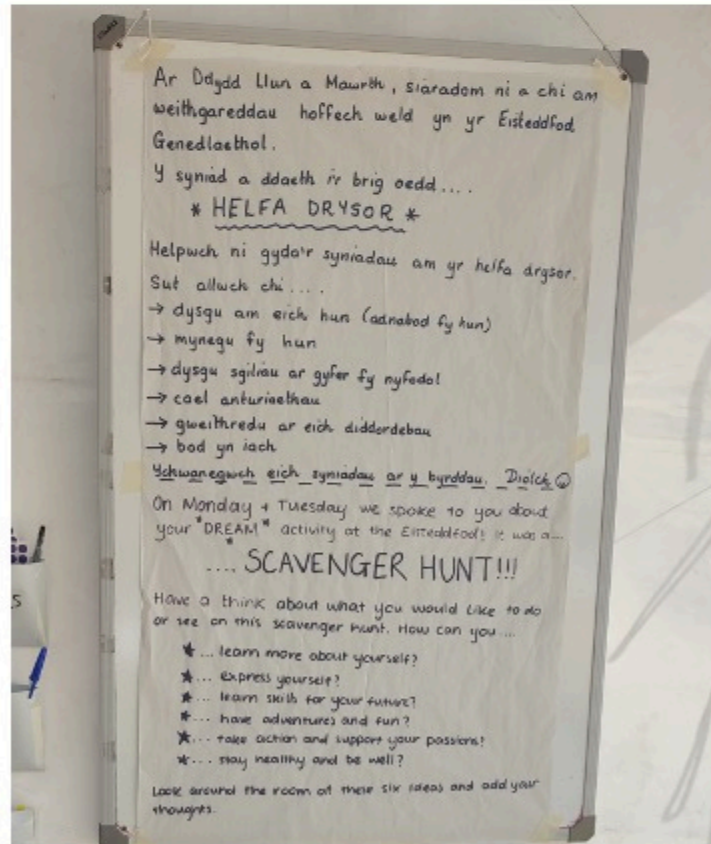 Ar Ddydd Llun a Mawrth, siaradom ni a chi am
weithgareddau hoffech weld yn yr Eisteddfod
Genedlaethol.
Y syniad a ddaeth i'r brig oedd ....
* HELFA DRYSOR *
Helpwch ni gyda'r syniadau am yr helfa drysor.
Sut allwch chi ....
→ dysgu am eich hun (adnabod fy hun)
→ mynegu fy hun
→ dysgu sgiliau ar gyfer fy nyfodol
→ cael anturiaethau
→ gweithredu ar eich diddordebau
→ bod yn iach
Ychwanegwch eich syniadau ar y byrddau. Diolch ☺
On Monday + Tuesday we spoke to you about
your *DREAM* activity at the Eisteddfod! It was a...
.... SCAVENGER HUNT!!!
Have a think about what you would like to do
or see on this scavenger hunt. How can you ....
★... learn more about yourself?
★... express yourself?
★... learn skills for your future?
★... have adventures and fun?
★... take action and support your passions?
★... stay healthy and be well?
Look around the room at these six ideas and add your
thoughts.